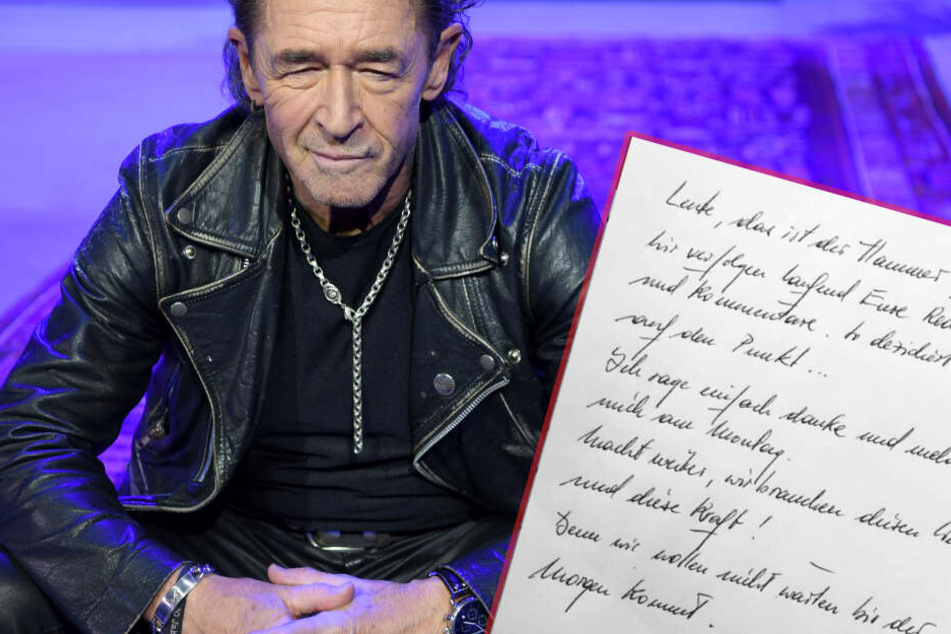 Leute, das ist der Hammer
Wir verfolgen laufend Eure
und Kommentare. So dezidiert
auf den Punkt...
Ich sage einfach danke und
mich am Montag.
Macht weiter, wir brauchen diesen
und diese Kraft!
Denn wir wollen nicht warten bis der
Morgen kommt.